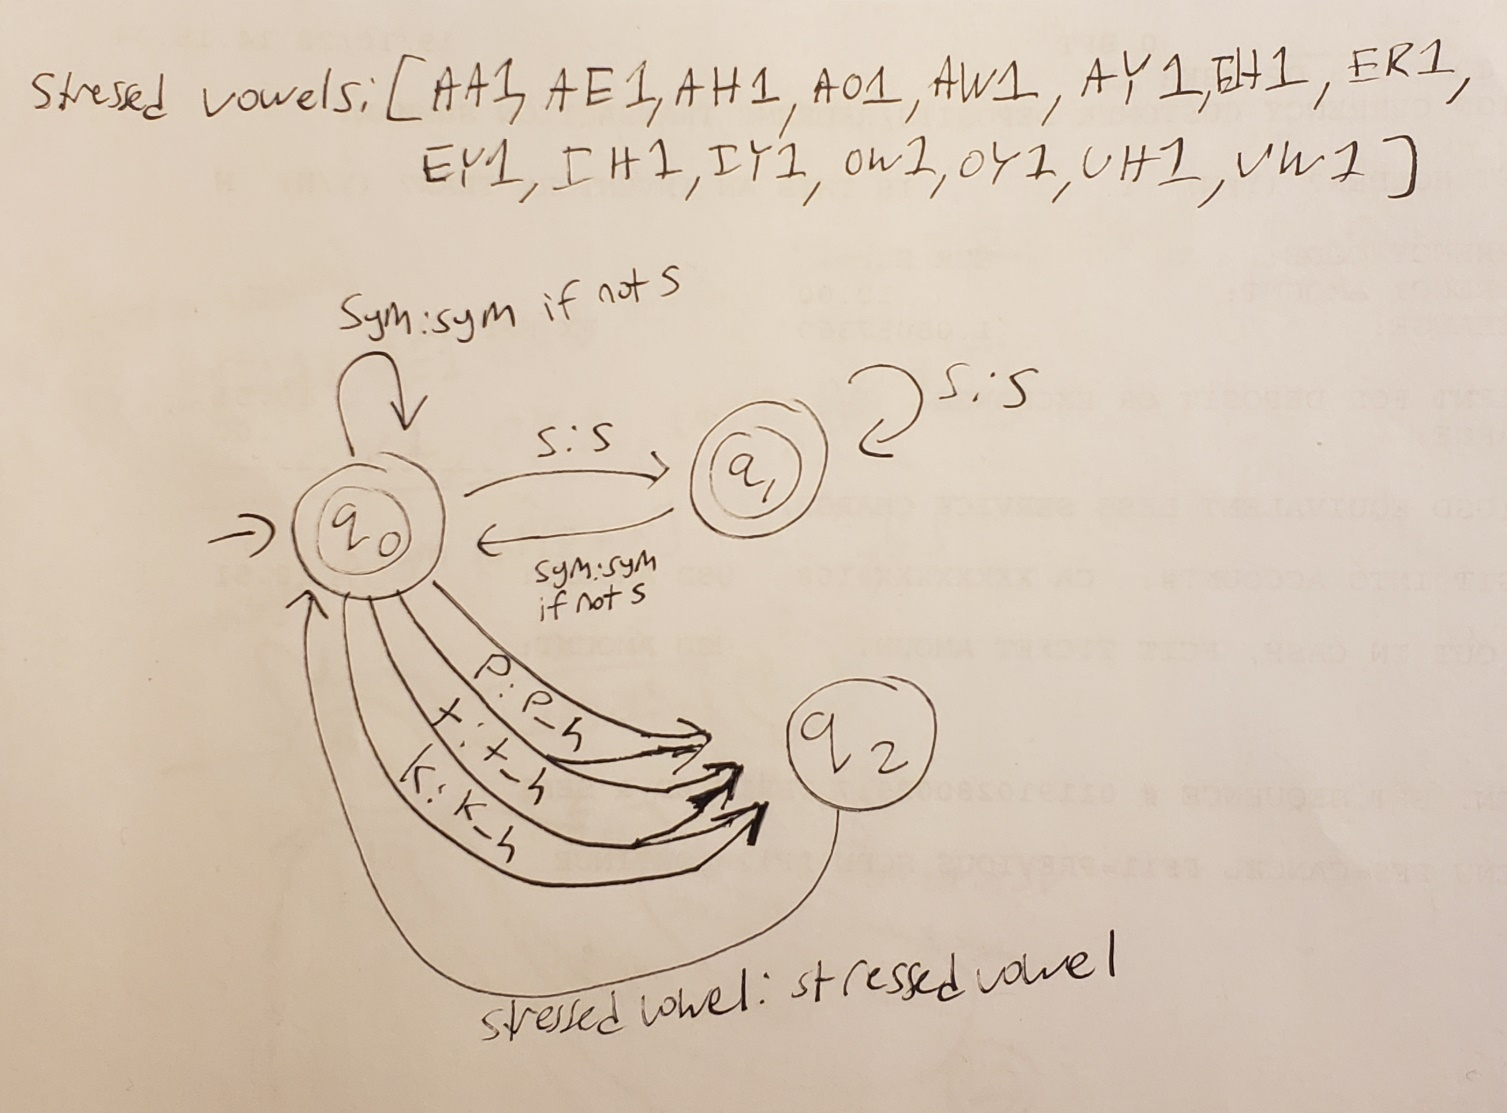 Stressed vowels: [AA1, AE1, AH1, AO1, AW1, AY1, EH1, ER1,
EY1, IH1, IY1, OW1, OY1, UH1, UW1]
Sym:sym if not S
S:S
S:S
q0
q1
sym:sym
if not S
P:P_h
t:t_h
K:K_h
q2
stressed vowel: stressed vowel